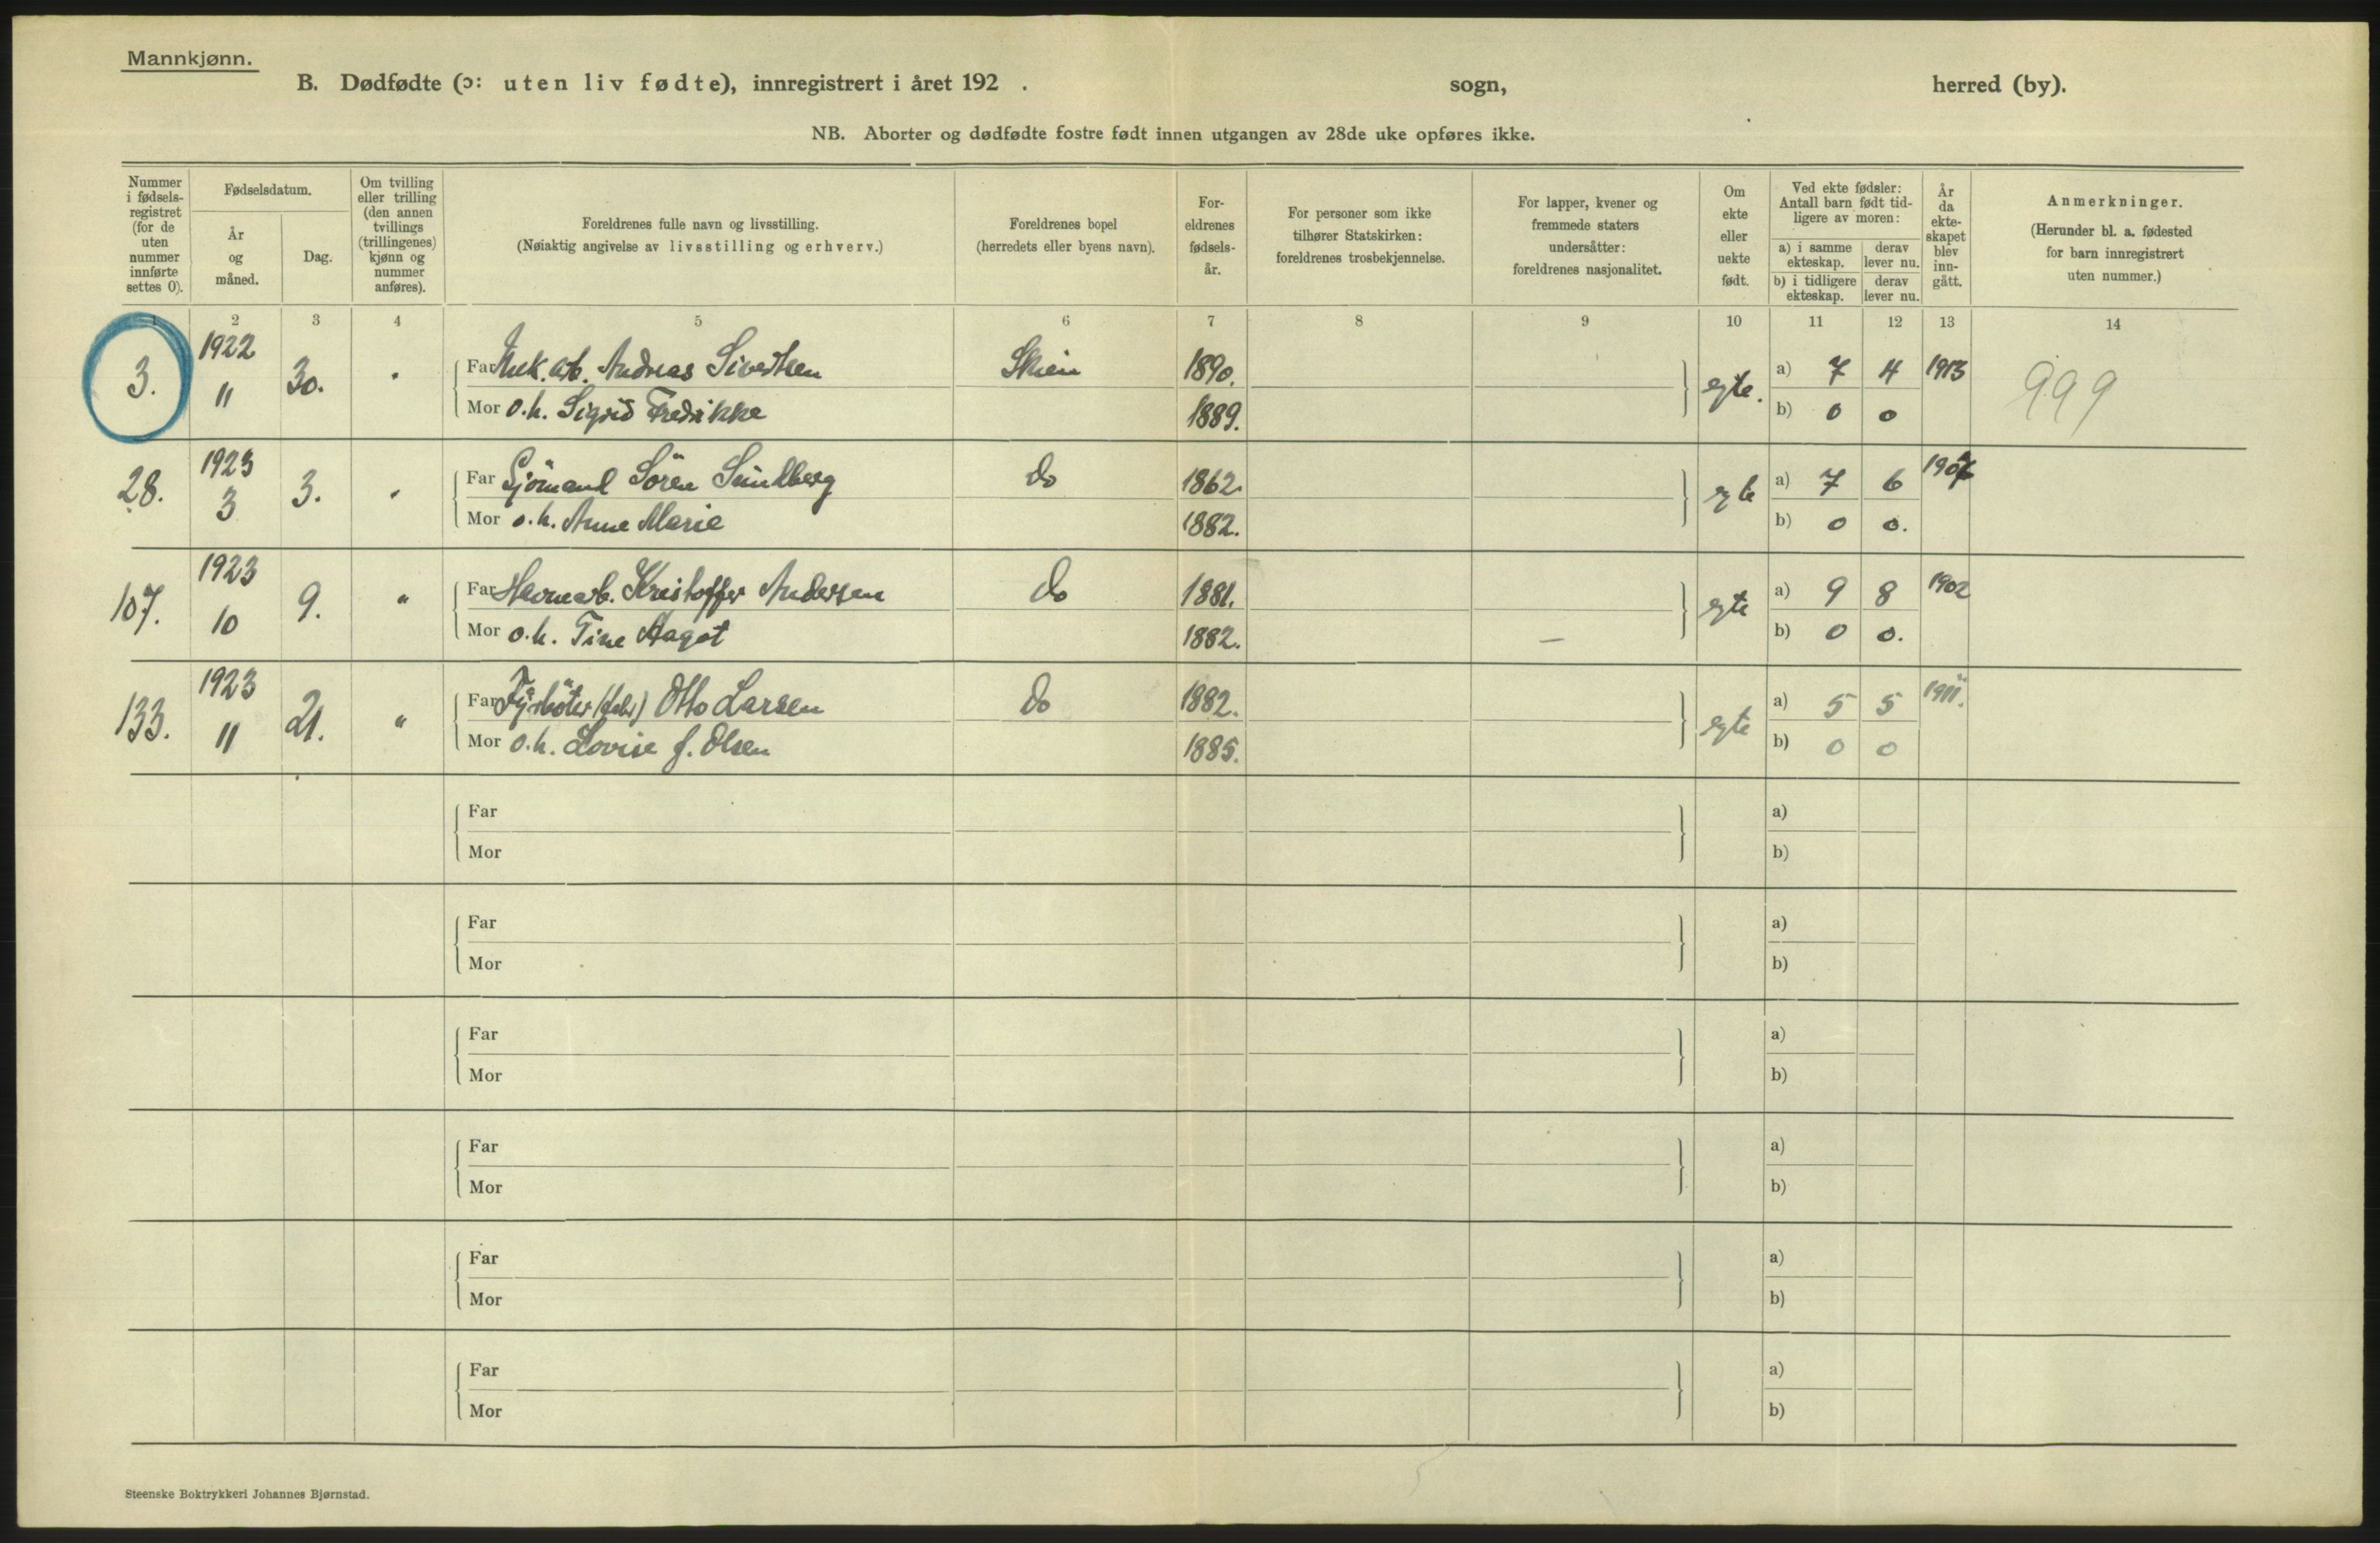 Mannkjønn.
B. Dødfødte (ɔ: uten liv fødte), innregistrert i året 192 . sogn, herred (by).
NB. Aborter og dødfødte fostre født innen utgangen av 28de uke opføres ikke.
Nummer i fødsels- registret (for de uten nummer innførte settes 0).
Fødselsdatum.
År og måned.
Dag.
Om tvilling eller trilling (den annen tvillings (trillingenes) kjønn og nummer anføres).
Foreldrenes fulle navn og livsstilling.
(Nøiaktig angivelse av livsstilling og erhverv.)
Foreldrenes bopel
(herredets eller byens navn).
For- eldrenes fødsels- år.
For personer som ikke tilhører Statskirken: foreldrenes trosbekjennelse.
For lapper, kvener og fremmede staters undersåtter: foreldrenes nasjonalitet.
Om ekte eller uekte født.
Ved ekte fødsler: Antall barn født tid- ligere av moren:
a) i samme ekteskap. derav lever nu.
b) i tidligere ekteskap. derav lever nu.
År da ekte- skapet blev inn- gått.
Anmerkninger.
(Herunder bl. a. fødested for barn innregistrert uten nummer.)
1 2 3 4 5 6 7 8 9 10 11 12 13 14
3. 1922 11 30. " Far Mek. arb. Andreas Sivertsen Skien 1890. egte. a) 7 4 1913 999
Mor o.h. Sigrid Fredrikke 1889. b) 0 0
28. 1923 3 3. " Far Sjömand Sören Sundberg do 1862. egte a) 7 6
Mor o.h. Anne Marie 1882. b) 0 0.
107. 1923 10 9. " Far Havnearb. Kristoffer Andersen do 1881. egte a) 9 8 1902
Mor o.h. Tine Aagot 1882. — b) 0 0.
133. 1923 11 21. " Far Fyrböter (fabr) Otto Larsen do 1882. egte a) 5 5 1911.
Mor o.h. Lovise f. Olsen 1885. b) 0 0
Far a)
Mor b)
Far a)
Mor b)
Far a)
Mor b)
Far a)
Mor b)
Far a)
Mor b)
Far a)
Mor b)
Steenske Boktrykkeri Johannes Bjørnstad.